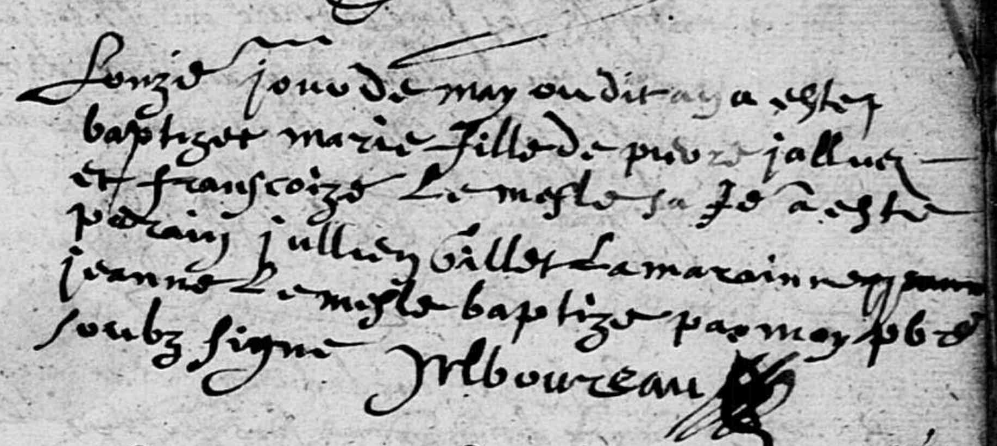 Lonze jour de may oudit an a estez
baptizee marie fille de pierre jalluez
et franscoize Le mesle sa fe a este
parain jullien Gillet La marainne
jeanne Le mesle baptize par moy pbre
soubz signe Boureau